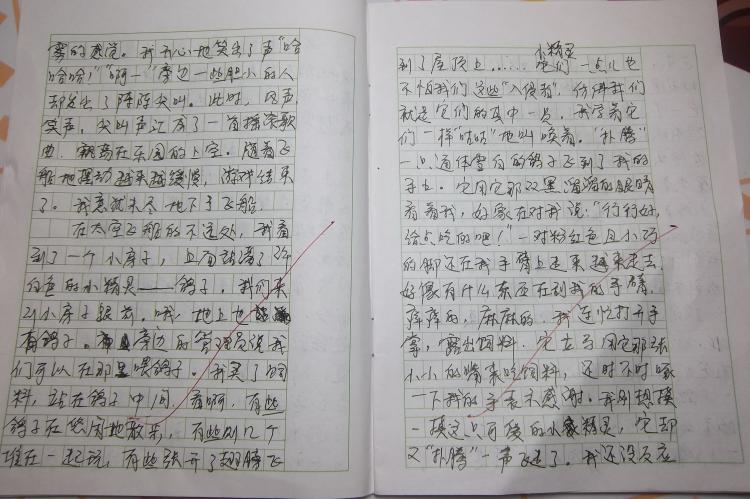 雾的感觉。我开心地笑出了声“哈
哈哈！”“啊—”旁边一些胆小的人
却发出了阵阵尖叫。此时，风声
笑声，尖叫声汇成了一首摇滚歌
曲，飘荡在乐园的上空。随着飞
船地摆动越来越缓慢，游戏结束
了。我意犹未尽地下了飞船。
在太空飞船的不远处，我看
到了一个小房子，上面站着了许
白色的小精灵——鸽子。我们来
到小房子跟前。哦，地上也
有鸽子。旁边的管理员说我
们可以在那里喂鸽子。我买了饲
料，站在鸽子中间。看啊，有些
鸽子在悠闲地散步，有些则几个
堆在一起玩，有些张开了翅膀飞
到了屋顶上……小精灵它们一点儿也
不怕我们这些“入侵者”，仿佛我们
就是它们的其中一员。我学着它
们一样“咕咕”地叫唤着。“扑腾”
一只通体雪白的鸽子飞到了我的
手上。它用它那双黑溜溜的眼睛
看着我，好象在对我说：“行行好，
给点吃的吧！”一对粉红色且小巧
的脚还在我手臂上走来走去，
好像有什么东西在刮我的手臂，
痒痒的，麻麻的。我连忙打开手
掌，露出饲料，它立马用它那张
小小的嘴来吃饲料，还时不时啄
一下我的手表示感谢。我刚想摸
一摸这只可爱的小精灵，它却
又“扑腾”一声飞走了。我还没反应